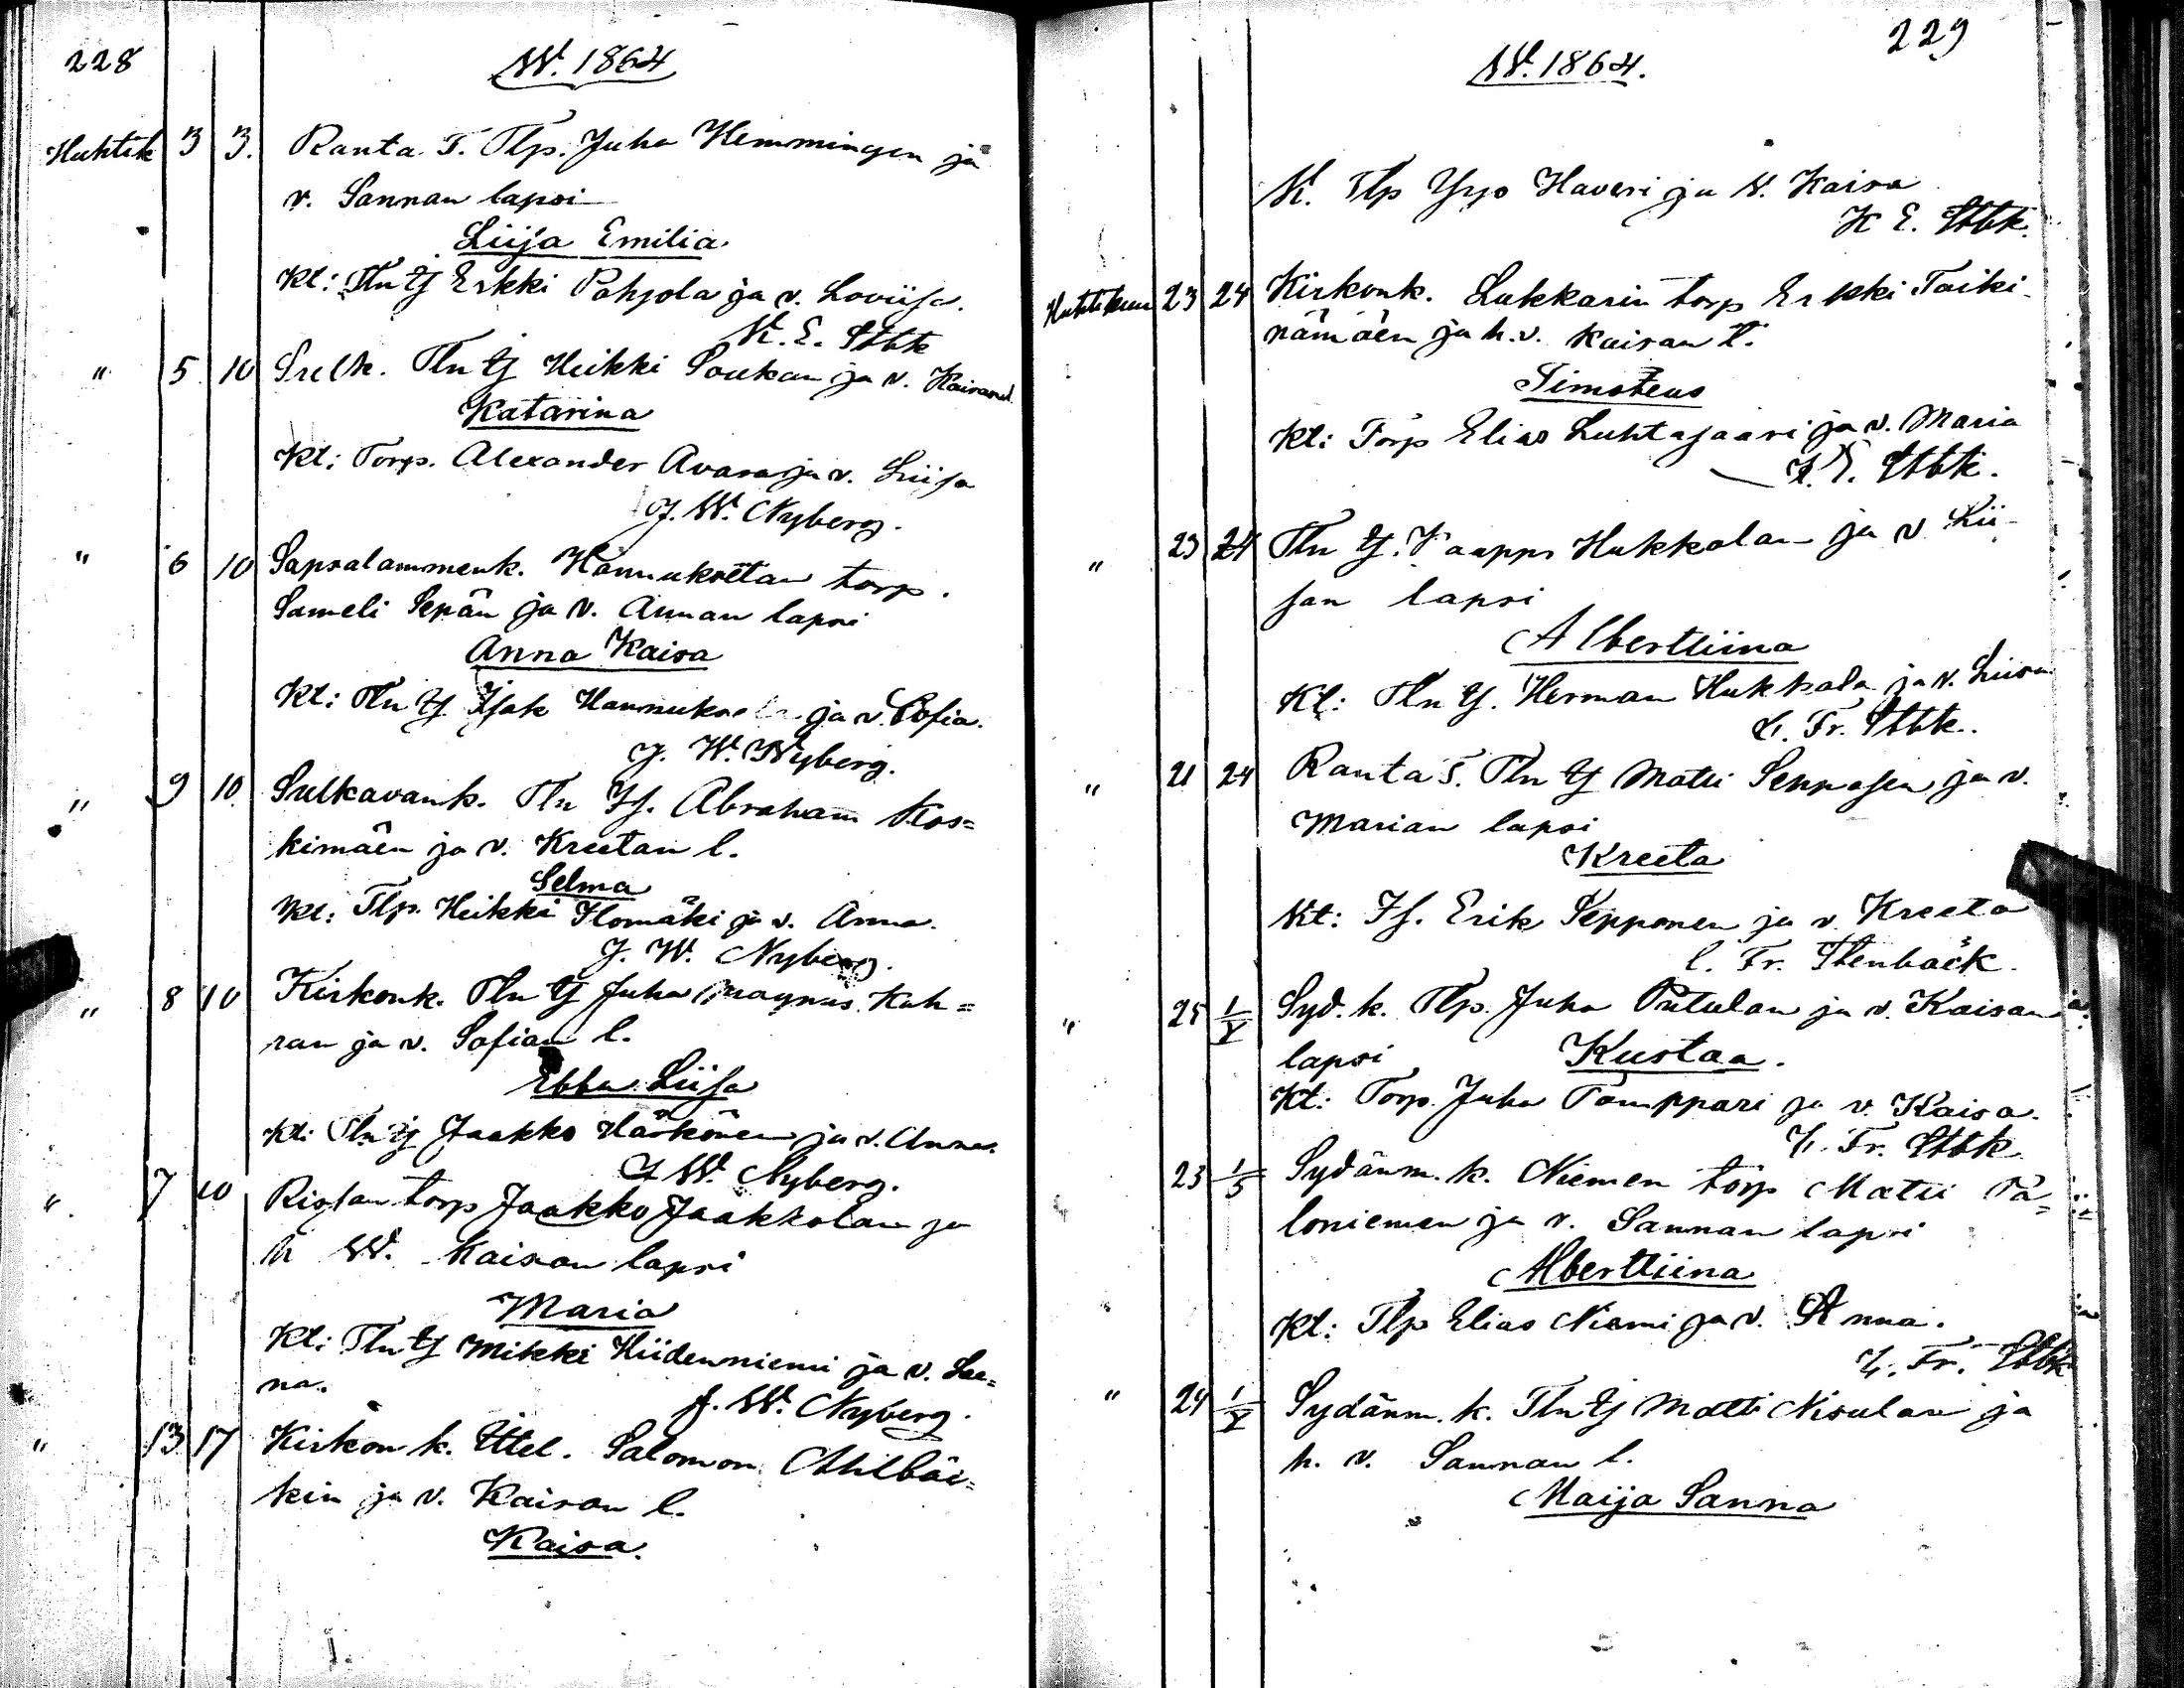 228
W. 1864
Huhtik 3 3. Ranta T. Tlp. Juha Hemmingen ja
v. Sannan lapsi
Liija Emilia
Kt: Tln tj Erkki Pohjola ja v. Loviisa.
K. E. Stbk
" 5 10 Sulk. Tln tj Heikki Soukan ja v. Kaisan l.
Katarina
Kt: Torp. Alexander Avara ja v. Liisa
J. W. Nyberg.
" 6 10 Sapsalammenk. Hannukselan torp.
Sameli Sepän ja v. Annan lapsi
Anna Kaisa
Kt: Tln tj Isak Hannuksela ja v. Sofia.
J. W. Nyberg.
" 9 10 Sulkavank. Tln Is. Abraham Kos=
kimäen ja v. Kreetan l.
Selma
Kt: Tlp. Heikki Ilomäki ja v. Anna.
J. W. Nyberg.
" 8 10 Kirkonk. Tln tj Juha Magnus Kuh=
ran ja v. Sofian l.
Ebba Liisa
Kt: Tln tj Jaakko Härkönen ja v. Anna.
J W. Nyberg.
" 7 10 torp Jaakko Jaakkolan ja
h W. Kaisan lapsi
Maria
Kt: Tln tj Mikki Hiidenniemi ja v. Lee=
na.
J. W. Nyberg.
" 13 17 Kirkonk. Ittel. Salomon
kin ja v. Kaisan l.
Kaisa.
229
W. 1864.
K. Tlp Yrjo Haveri ja W. Kaisa
K E. Stbk.
Huhtikuu 23 24 Kirkonk. Lukkarin torp Erkki Taiki-
nämäen ja h.v. Kaisan l.
Timoteus
Kt: Torp Elias Luhtasaari ja v. Maria
K. E. Stbk.
" 23 24 Tln tj. Kaappo Hukkalan ja v Lii-
san lapsi
Alberttiina
Kt: Tln tj. Herman Hukkala ja v. Liisa
C. Fr. Stbk.
" 21 24 Ranta T. Tln tj Matti Sepposen ja v.
Marian lapsi
Kreeta
Kt: Is. Erik Sepponen ja v. Kreeta
C. Fr. Stenbäck.
" 25 1/V Syd. k. Tlp. Juha Putulan ja v. Kaisan
lapsi Kustaa.
Kt: Torp. Juha Tamppari ja v. Kaisa.
C. Fr. Stbk
23 1/5 Sydänm. k. Niemen torp Matti Pä=
loniemen ja v. Sannan lapsi
Alberttiina
Kt: Tlp Elias Niemi ja v. Anna.
C. Fr. Stbk
" 24 1/V Sydänm. k. Tln tj Matti Nisulan ja
h. v. Sannan l.
Maija Sanna